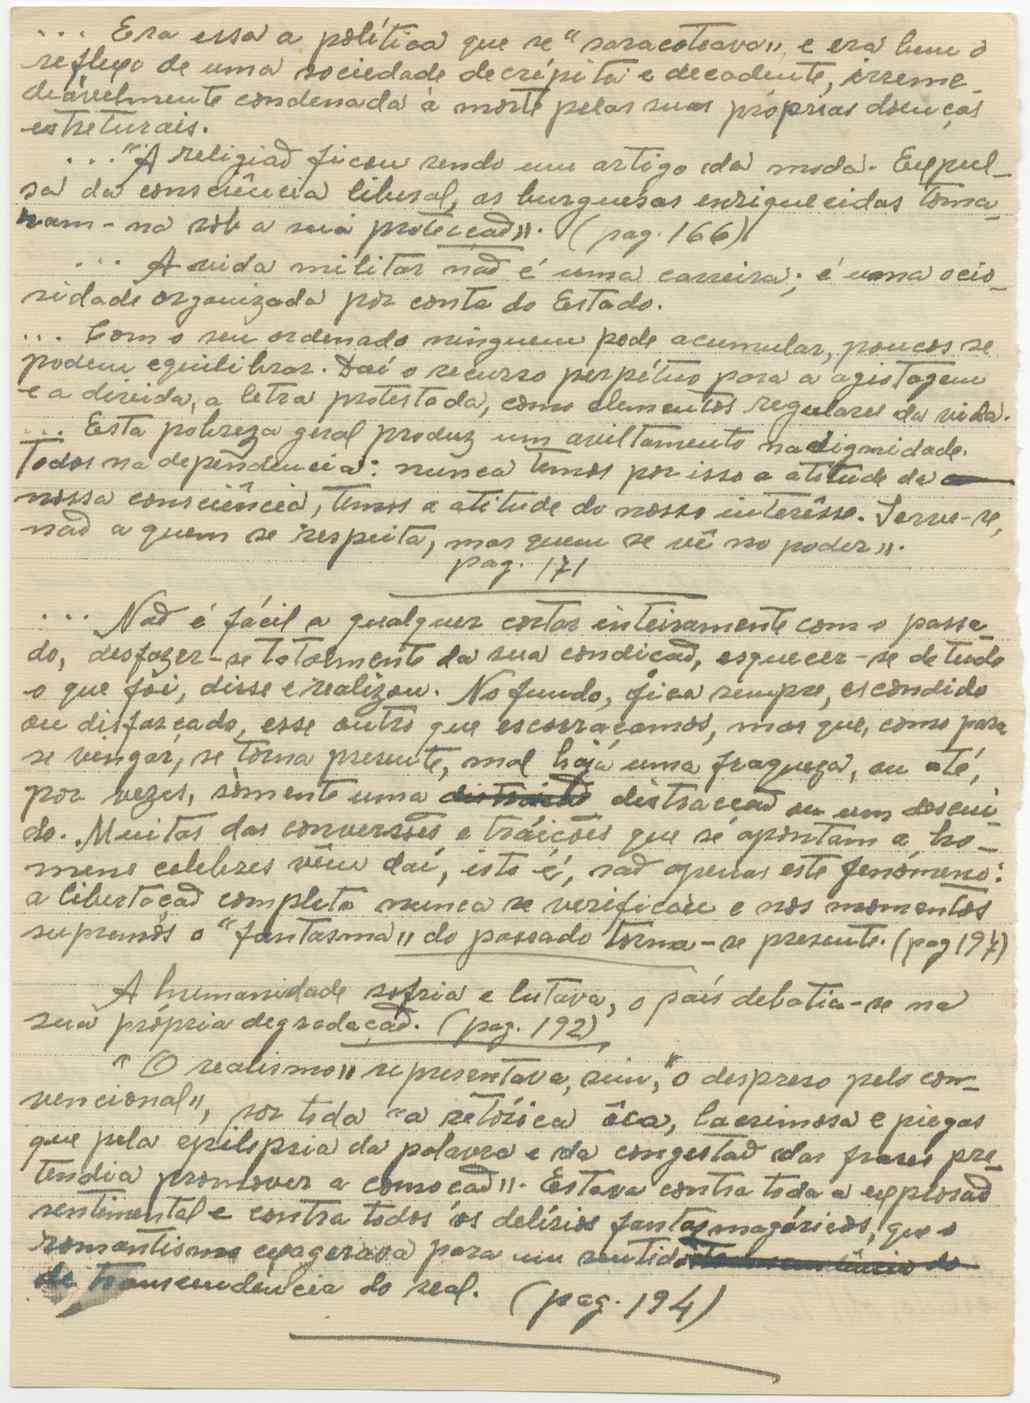 ... Era essa a política que se "saracoteava", e era bem o
reflexo de uma sociedade decrépita e decadente, irreme-
diávelmente condenada à morte pelas suas próprias doenças
estreturais.
..."A religião ficou sendo um artigo da moda. Expul-
sa da consciência liberal, os burgueses enriquecidos toma-
ram-na sob a sua protecção". (pag. 166)
... A vida militar não é uma carreira; é uma ocio-
sidade organizada por conta do Estado.
... Com o seu ordenado ninguem pode acumular, poucos se
podem equilibrar. Daí o recurso perpétuo para a agiotagem
e a divida, a letra protestada, como elementos regulares da vida.
... Esta pobreza geral produz um aviltamento na dignidade.
Todos na dependencia: nunca temos por isso a atitude da
nossa consciência, temos a atitude do nosso interêsse. Serve-se,
não a quem se respeita, mas quem se vê no poder".
pag. 171
... Não é fácil a qualquer cortar inteiramente com o passa-
do, desfazer-se totalmente da sua condicão, esquecer-se de tudo
o que foi, disse e realizou. No fundo, fica sempre, escondido
ou disfarcado, esse outro que escorraçamos, mas que, como para
se vengar, se torna presente, mal haja uma fraqueza, ou até,
por vezes, sòmente uma distracção ou um descui-
do. Muitas das conversões e traicões que se apontam a ho-
mens celebres vêm daí, isto é, são apenas este fenómeno:
a libertação completa nunca se verificou e nos momentos
supremos o "fantasma" do passado torna-se presente. (pag 197)
A humanidade sofria e lutava, o país debatia-se na
sua própria degradação. (pag. 192)
" O realismo" representava, sim, "o despreso pelo con-
vencional", por toda "a retórica ôca, lacrimosa e piegas
que pela epilepsia da palavra e da congestão das frases pre-
tendia promover a comocão". Estava contra toda a explosão
sentimental e contra todos os delírios fantasmagóricos, que o
romantismo exagerava para um sentido
de transcendência do real. (pag. 194)